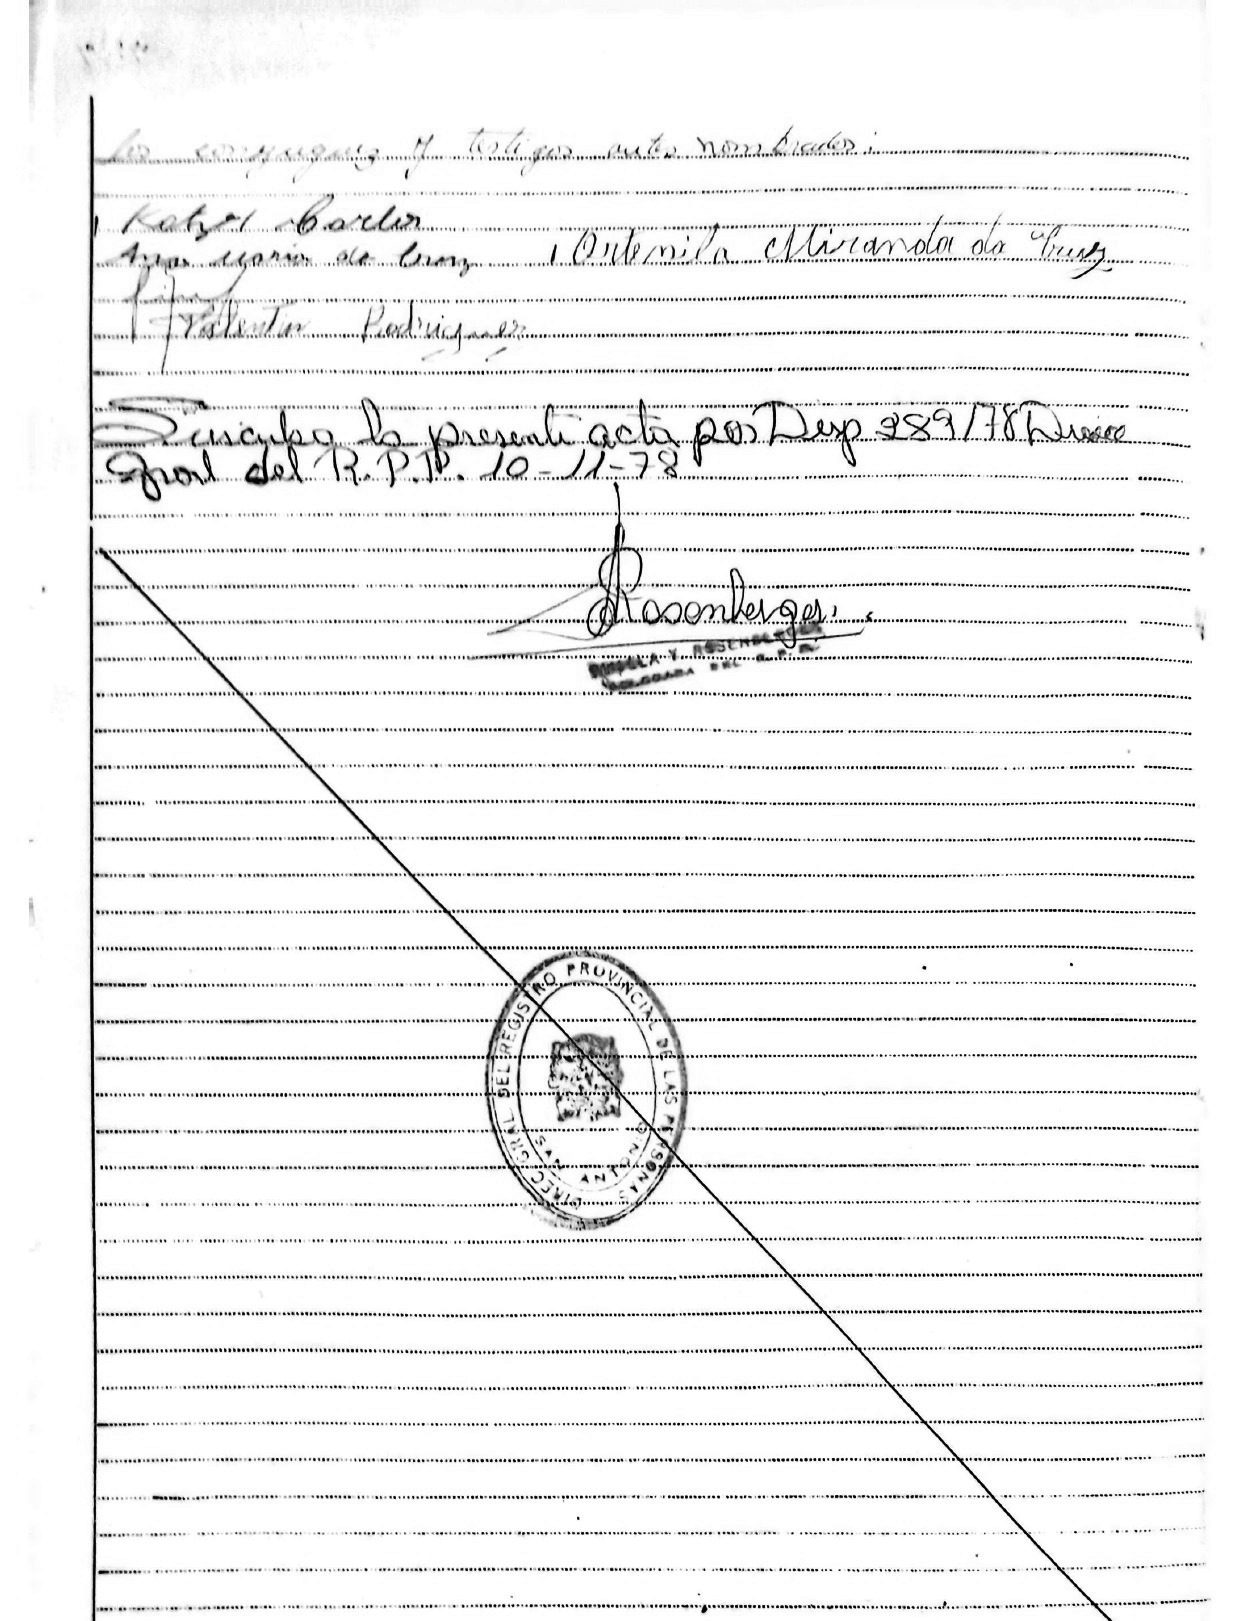 los conyuges y testigos antes nombrados:
Katzel Carlos
Ana Maria da Cruz
Ortenila Miranda da Cruz
Valentin Rodriguez
Suscribo la presente acta por Disp 289/78 Direcc
Gral del R.P.P. 10-11-78
Rosenberger
Y. ROSENBERGER
DEL R. P. P.
DIREC. GRAL. DEL REGISTRO PROVINCIAL DE LAS PERSONAS
SAN ANTONIO